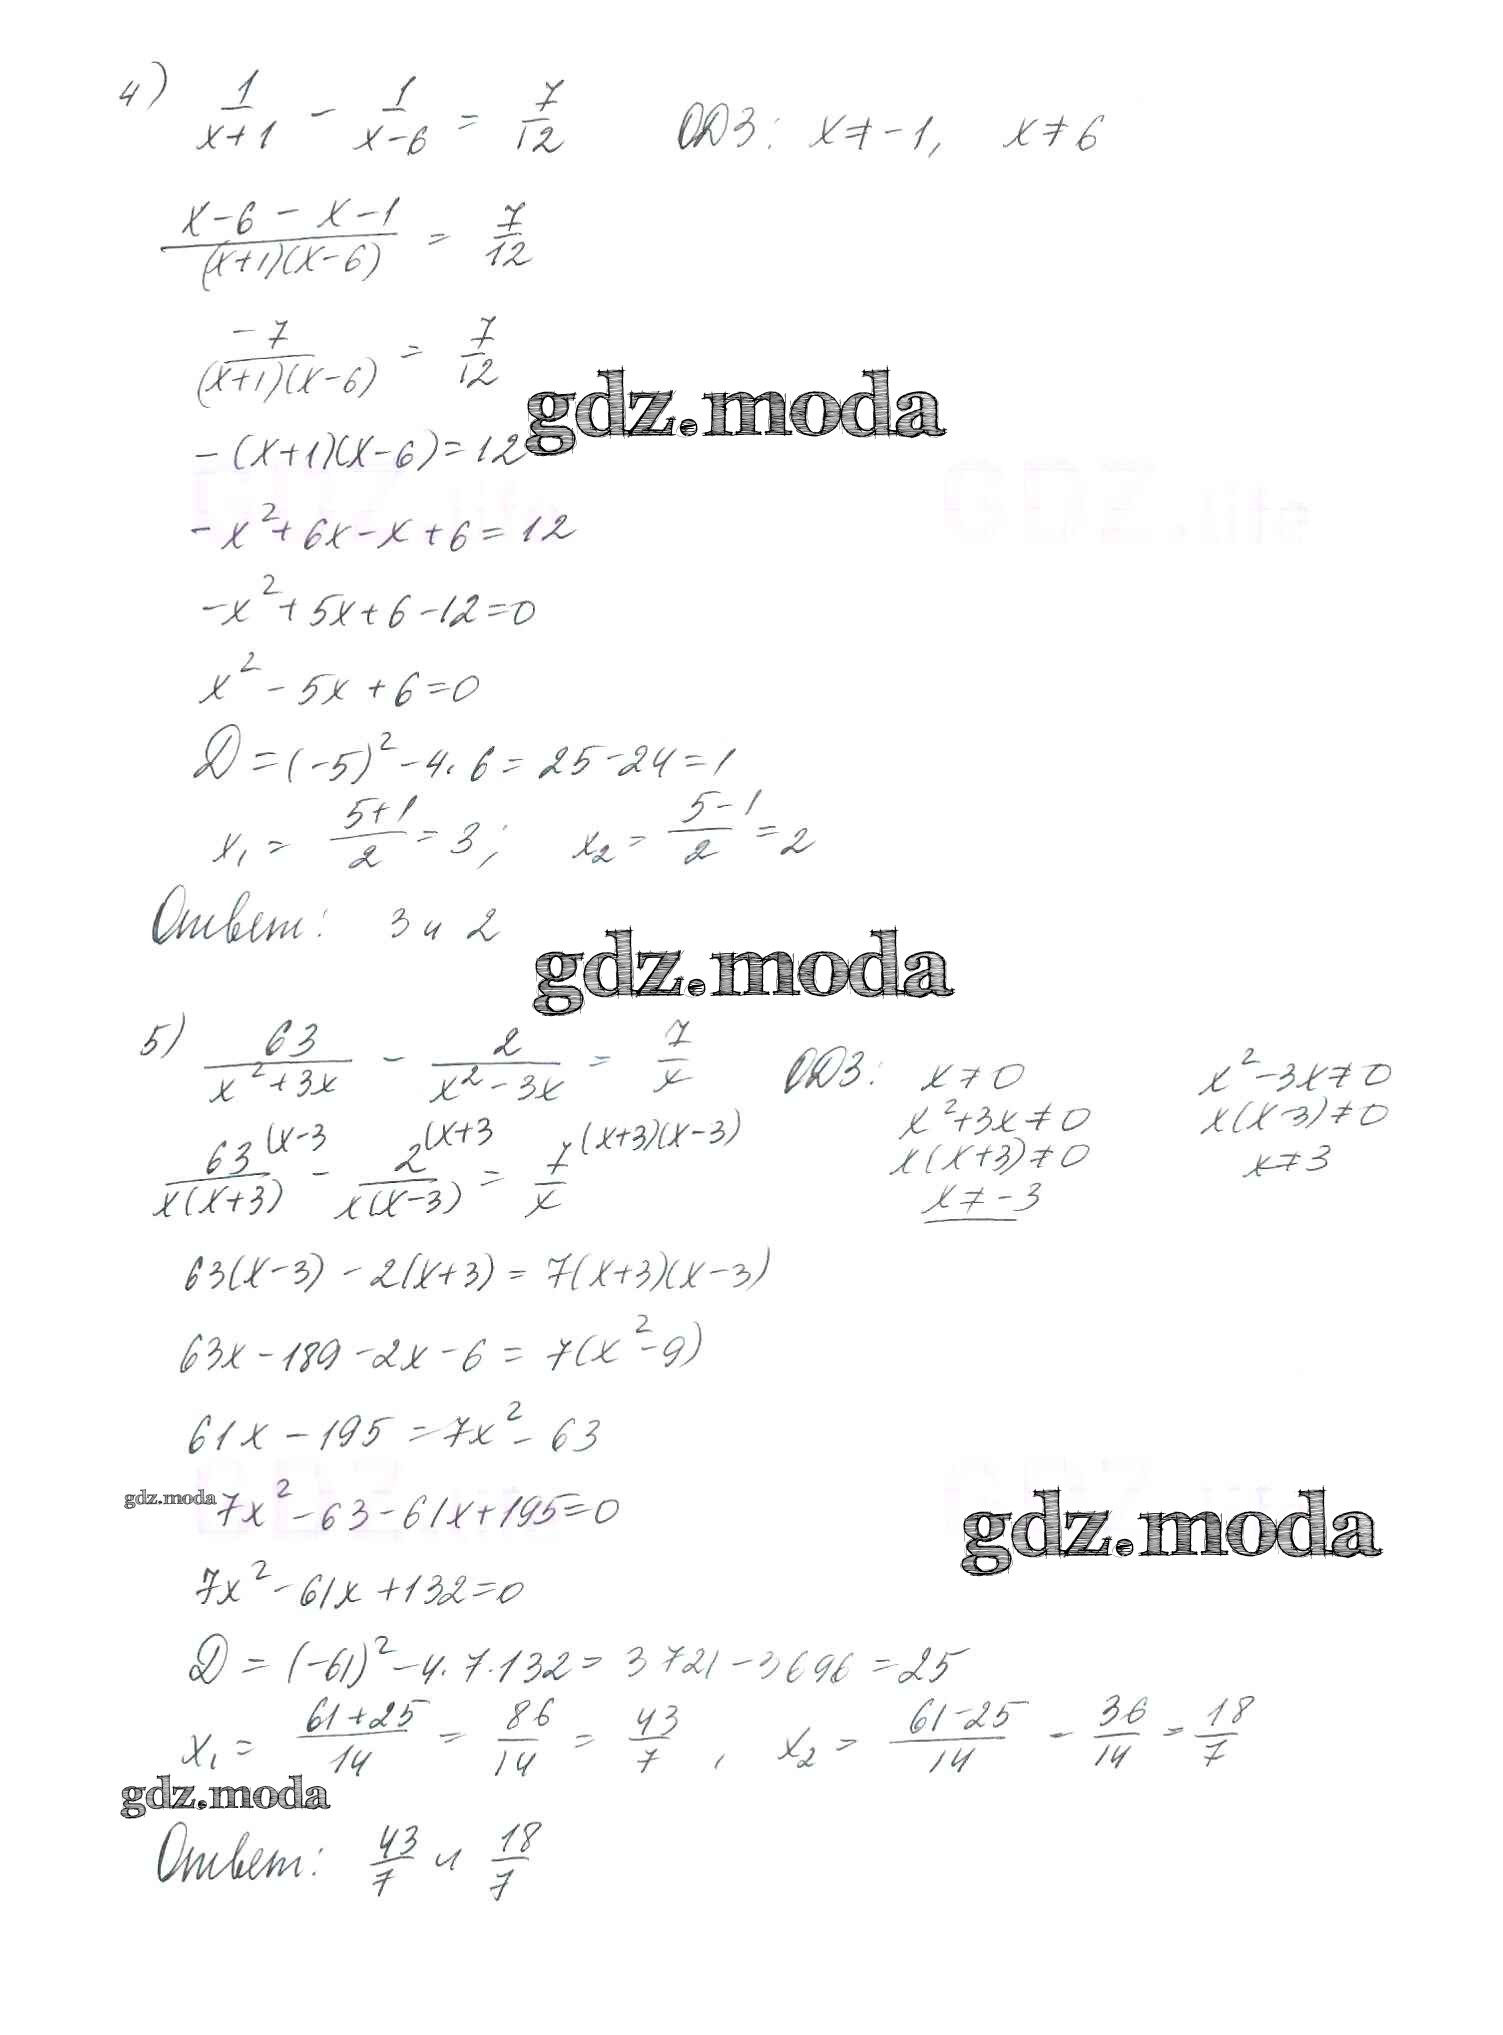 4) 1/(x+1) - 1/(x-6) = 7/12 ОДЗ: x≠-1, x≠6
(x-6-x-1)/((x+1)(x-6)) = 7/12
-7/((x+1)(x-6)) = 7/12
gdz.moda
-(x+1)(x-6)=12
GDZ.life GDZ.life
-x²+6x-x+6=12
-x²+5x+6-12=0
x²-5x+6=0
D=(-5)²-4·6=25-24=1
x₁=(5+1)/2=3; x₂=(5-1)/2=2
Ответ: 3 и 2
gdz.moda
5) 63/(x²+3x) - 2/(x²-3x) = 7/x ОДЗ: x≠0 x²-3x≠0
x²+3x≠0 x(x-3)≠0
63^(x-3/(x(x+3)) - 2^(x+3/(x(x-3)) = 7^(x+3)(x-3)/x x(x+3)≠0 x≠3
x≠-3
63(x-3)-2(x+3)=7(x+3)(x-3)
63x-189-2x-6=7(x²-9)
61x-195=7x²-63
gdz.moda
7x²-63-61x+195=0
gdz.moda
7x²-61x+132=0
D=(-61)²-4·7·132=3721-3696=25
x₁=(61+25)/14=86/14=43/7, x₂=(61-25)/14=36/14=18/7
gdz.moda
Ответ: 43/7 и 18/7